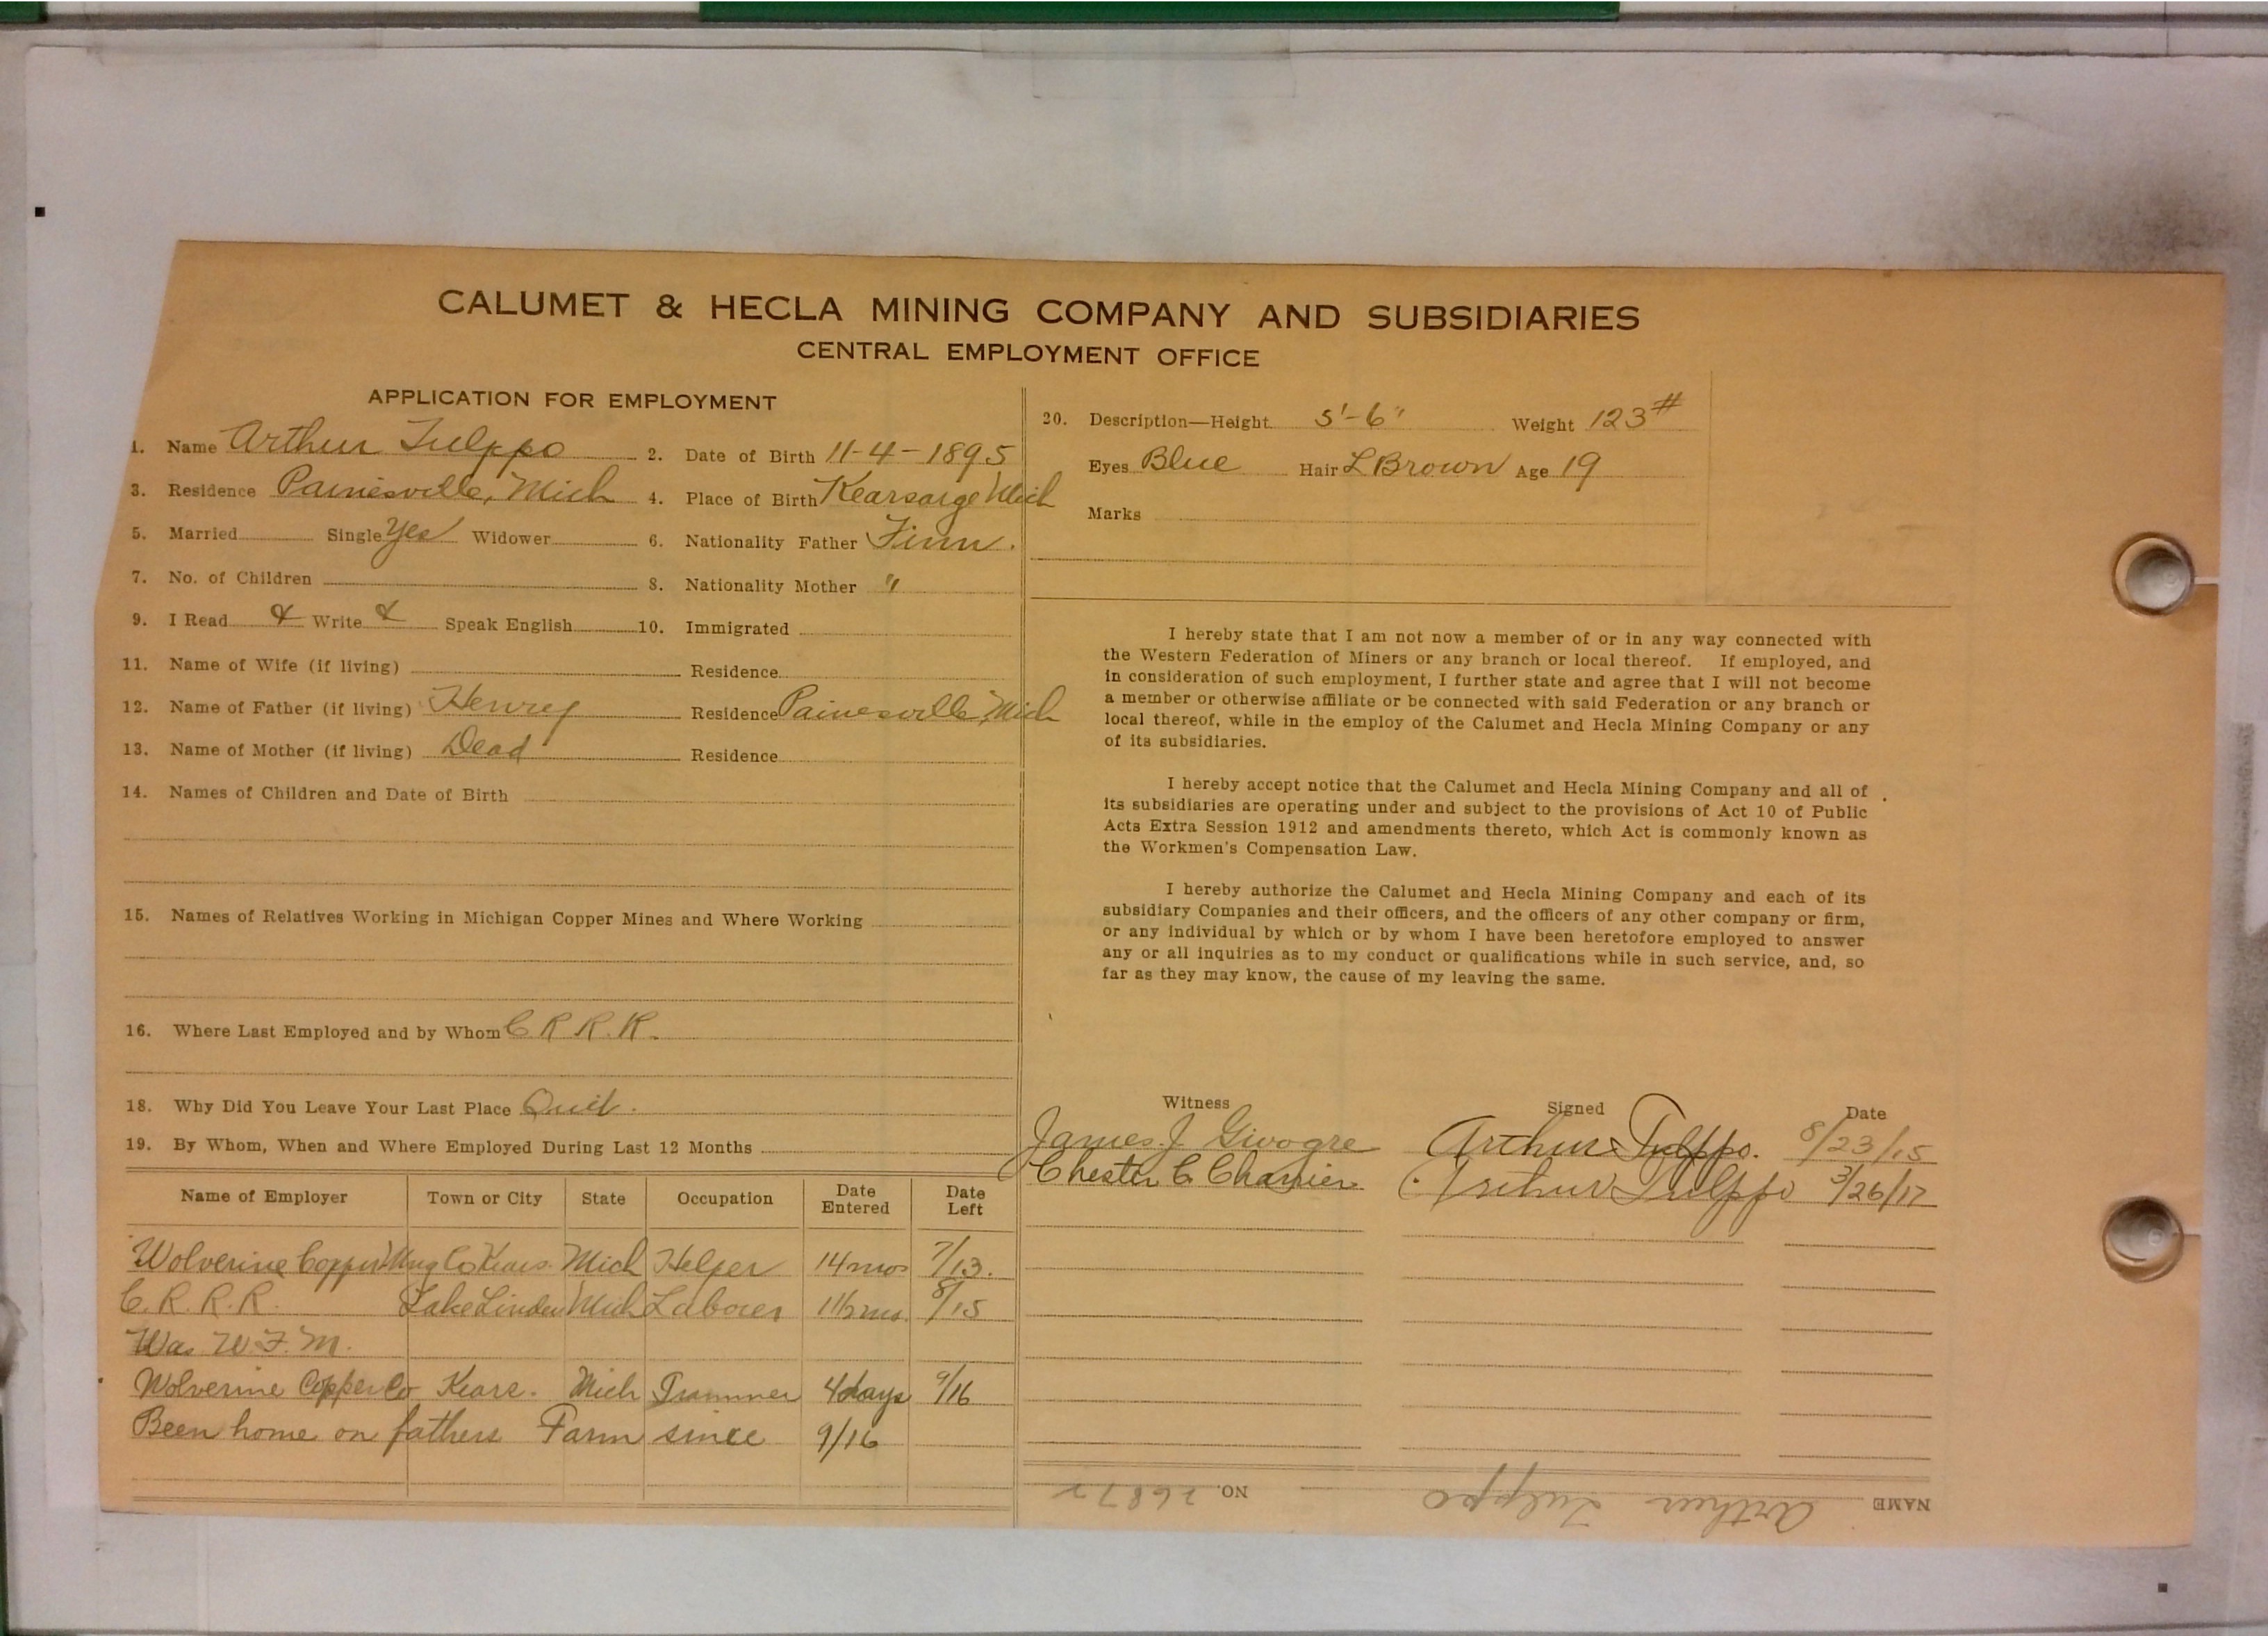 CALUMET & HECLA MINING COMPANY AND SUBSIDIARIES
CENTRAL EMPLOYMENT OFFICE
APPLICATION FOR EMPLOYMENT
1. Name Arthur Tulppo 2. Date of Birth 11-4-1895
3. Residence Painesville, Mich 4. Place of Birth Kearsarge Mich
5. Married Single Yes Widower 6. Nationality Father Finn.
7. No. of Children 8. Nationality Mother "
9. I Read & Write & Speak English 10. Immigrated
11. Name of Wife (if living) Residence
12. Name of Father (if living) Henrey Residence Painesville, Mich
13. Name of Mother (if living) Dead Residence
14. Names of Children and Date of Birth
15. Names of Relatives Working in Michigan Copper Mines and Where Working
16. Where Last Employed and by Whom C R R. R.
18. Why Did You Leave Your Last Place Quit.
19. By Whom, When and Where Employed During Last 12 Months
Name of Employer Town or City State Occupation Date Entered Date Left
Wolverine Copper Mng Co Kears. Mich Helper 14 mos 7/13.
C. R. R. R. Lake Linden Mich Laborer 8/15
Was W. F. M.
Wolverine Copper Co Kears. Mich Trammer 4 days 9/16
Been home on fathers Farm since 9/16
20. Description—Height 5'-6" Weight 123#
Eyes Blue Hair L Brown Age 19
Marks
I hereby state that I am not now a member of or in any way connected with
the Western Federation of Miners or any branch or local thereof. If employed, and
in consideration of such employment, I further state and agree that I will not become
a member or otherwise affiliate or be connected with said Federation or any branch or
local thereof, while in the employ of the Calumet and Hecla Mining Company or any
of its subsidiaries.
I hereby accept notice that the Calumet and Hecla Mining Company and all of
its subsidiaries are operating under and subject to the provisions of Act 10 of Public
Acts Extra Session 1912 and amendments thereto, which Act is commonly known as
the Workmen's Compensation Law.
I hereby authorize the Calumet and Hecla Mining Company and each of its
subsidiary Companies and their officers, and the officers of any other company or firm,
or any individual by which or by whom I have been heretofore employed to answer
any or all inquiries as to my conduct or qualifications while in such service, and, so
far as they may know, the cause of my leaving the same.
Witness Signed Date
James J Givogre Arthur Tulppo. 8/23/15
Chester C Arthur Tulppo 3/26/17
NAME Arthur Tulppo NO.